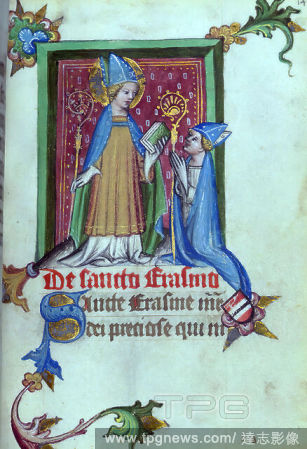 De sancto Erasmo
Sancte Erasme mr
dei preciose qui in
TPG
www.tpgnews.com/ 達志影像